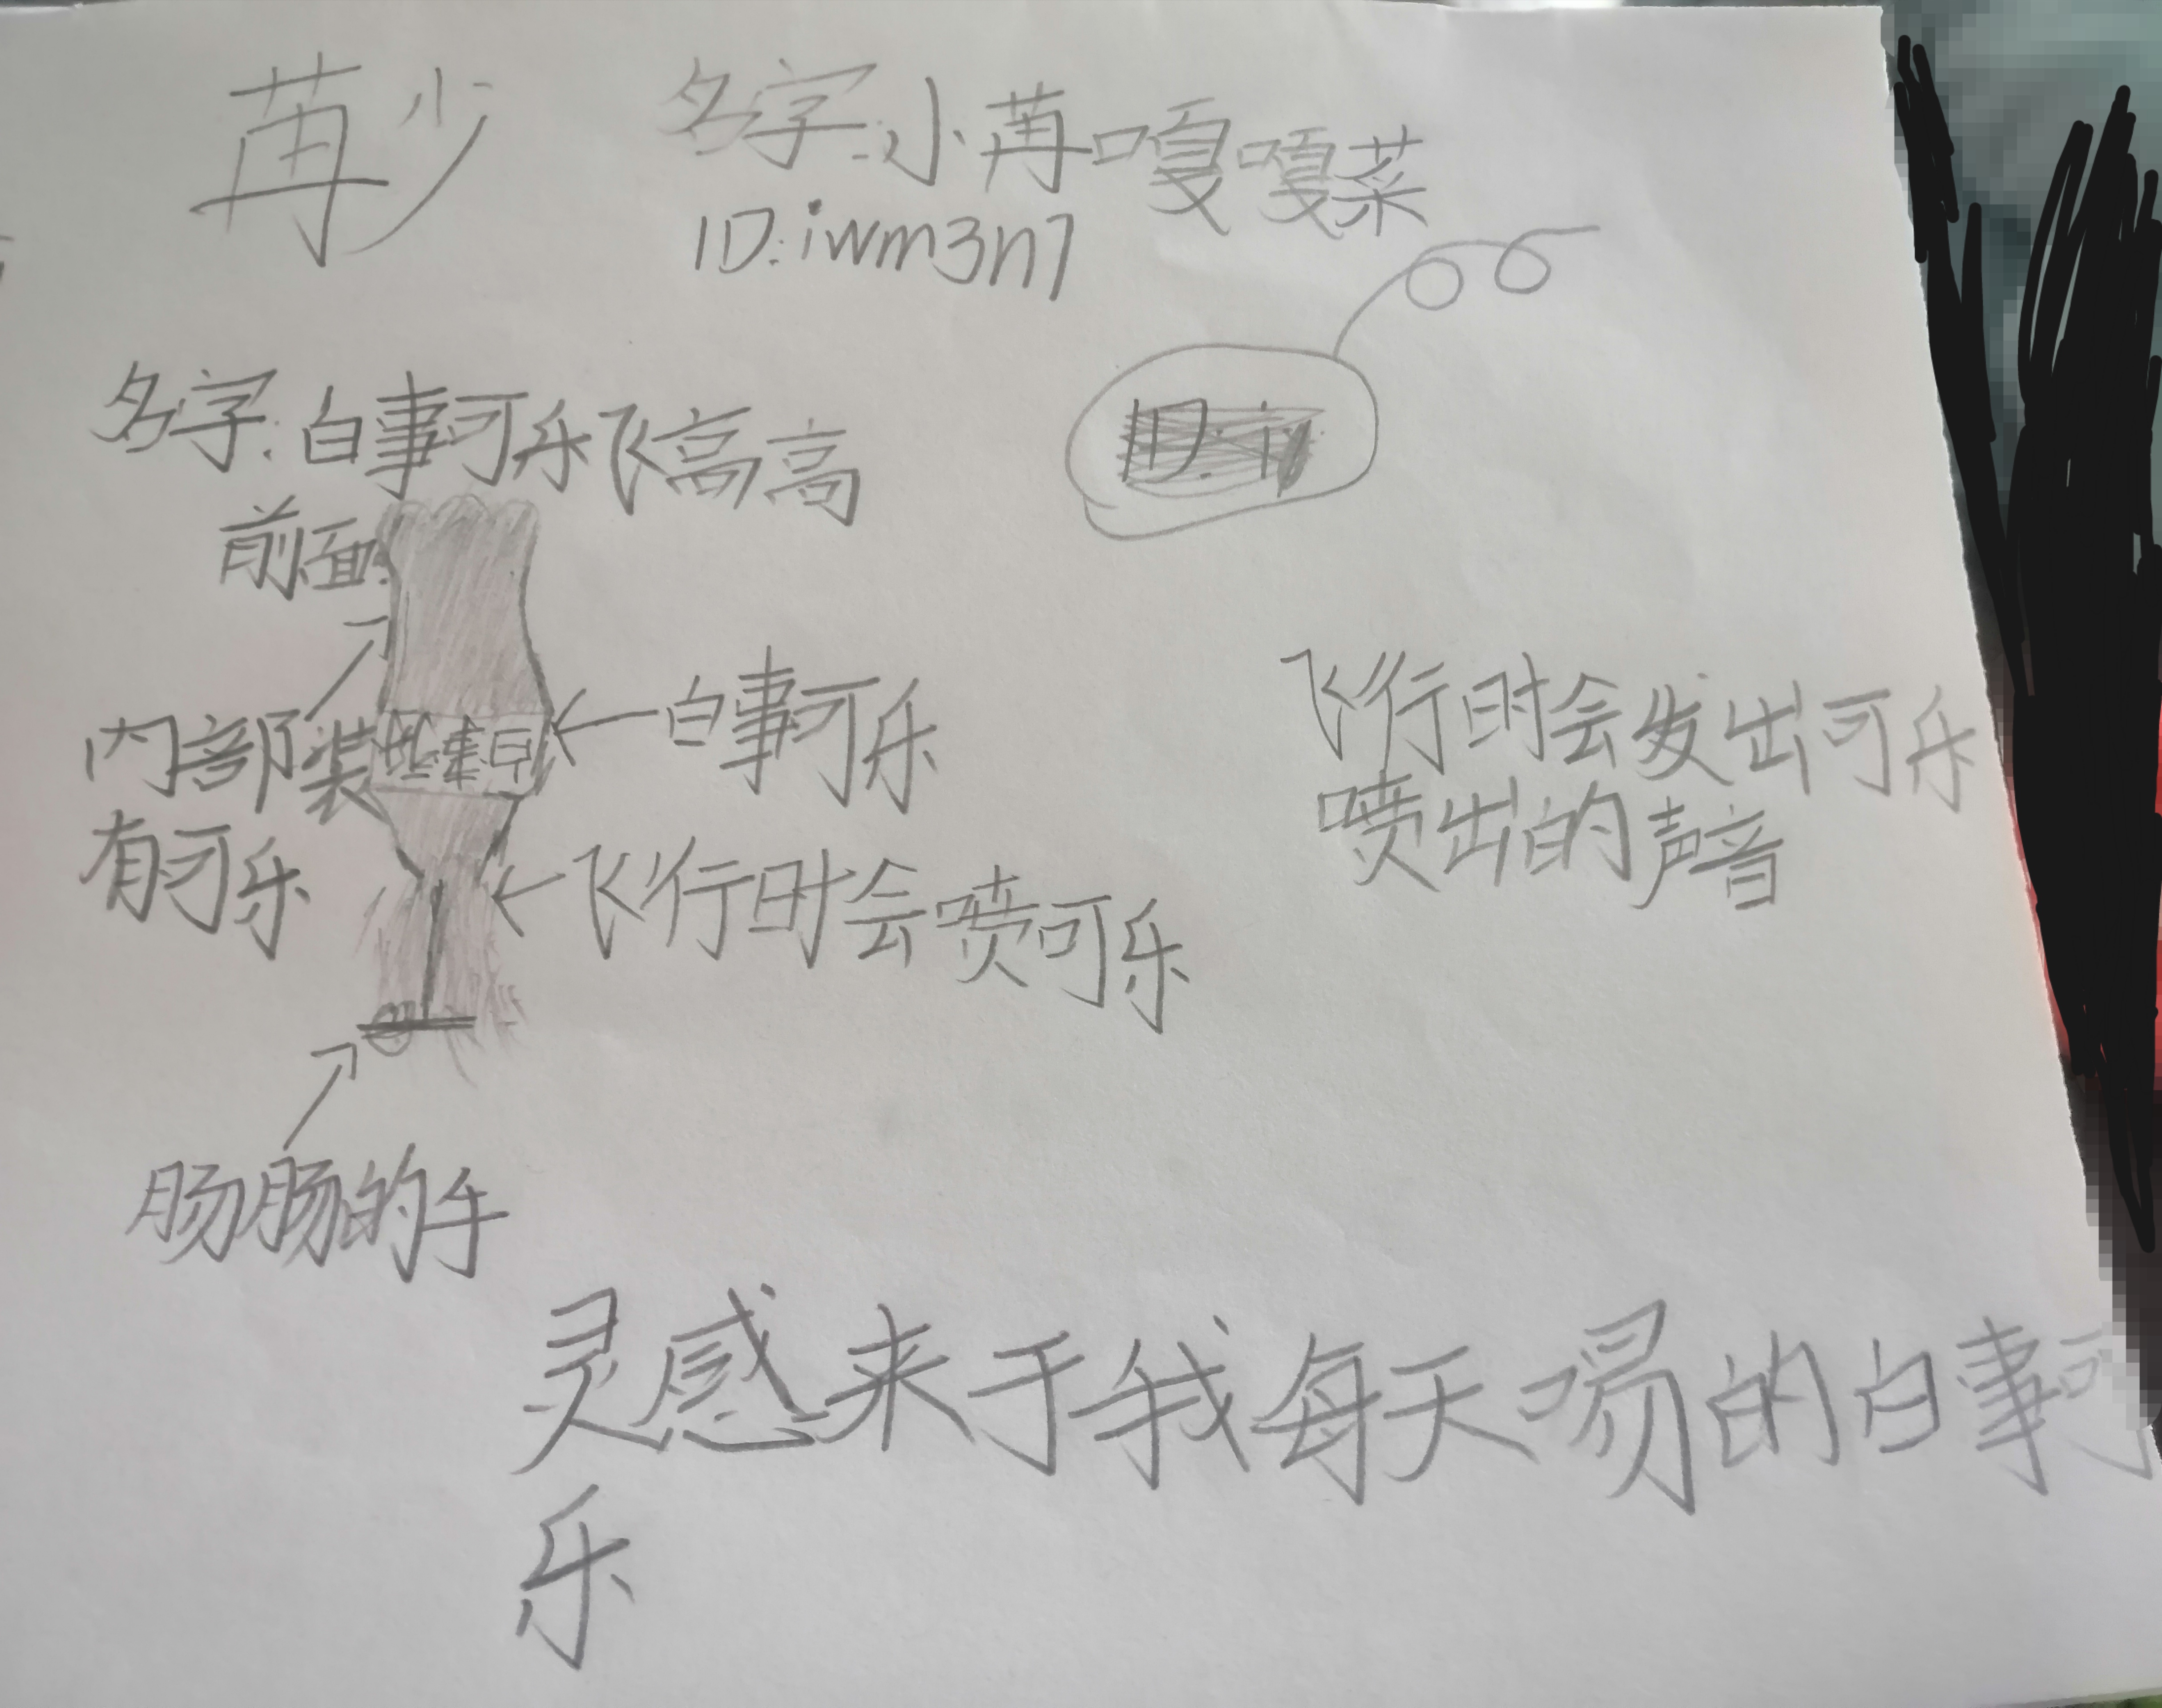 苒少
名字:小苒嘎嘎菜
ID:iwm3n7
名字:白事可乐飞高高
ID:iw
前面:
白事可乐
内部装
有可乐
飞行时会发出可乐
喷出的声音
飞行时会喷可乐
肠肠的手
灵感来于我每天喝的白事可
乐